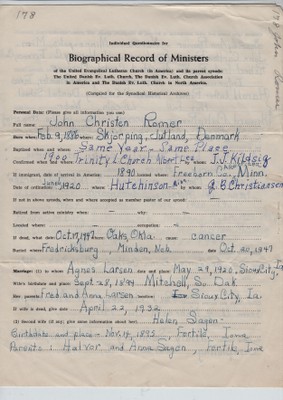 178
178 John Romer
Individual Questionnaire for
Biographical Record of Ministers
of the United Evangelical Lutheran Church (in America) and its parent synods:
The United Danish Ev. Luth. Church, The Danish Ev. Luth. Church Association
in America and The Danish Ev. Luth. Church in North America.
(Compiled for the Synodical Historical Archives)
Personal Data: (Please give all information you can)
Full name John Christen Romer
Date born Feb. 9, 1886 where: Skjörping, Jutland, Denmark
Baptized when and where: Same Year - Same Place
Confirmed when and where 1900 Trinity Church Albert Lea by whom: J. J. Kildsig
If immigrated, date of arrival in America: 1890 located Freeborn Co., Minn.
Date of ordination: June 1920 where Hutchinson Minn by whom G. B. Christiansen
If not in above synods, when and where accepted as member pastor of same:
Retired from active ministry when: why:
Located where: occupation:
If dead, what date Oct 17, 1947 where: Oaks, Okla cause: cancer
Buried where Fredricksburg, Minden, Neb. date Oct. 20, 1947
Marriage: (1) to whom Agnes Larsen date and place May 29, 1920, Sioux City, Ia
Wife's birthdate and place: Sept. 28, 1894 Mitchell, So. Dak
Her parents Fred and Anna Larsen Sioux City, Ia.
If wife is dead, give date April 22, 1932
(2) Second wife (if any; give same information about her) Helen Sagen -
Birthdate and place - Nov. 14, 1895, Fertile, Iowa
Parents: Halvor and Anna Sagen, Fertile, Iowa